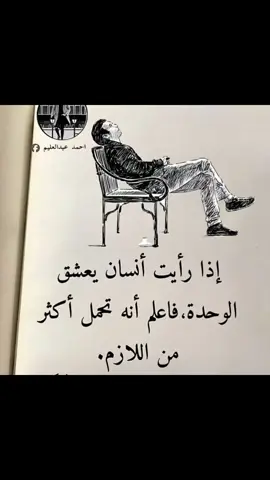 احمد عبدالعليم
إذا رأيت أنسان يعشق
الوحدة،فاعلم أنه تحمل أكثر
من اللازم.